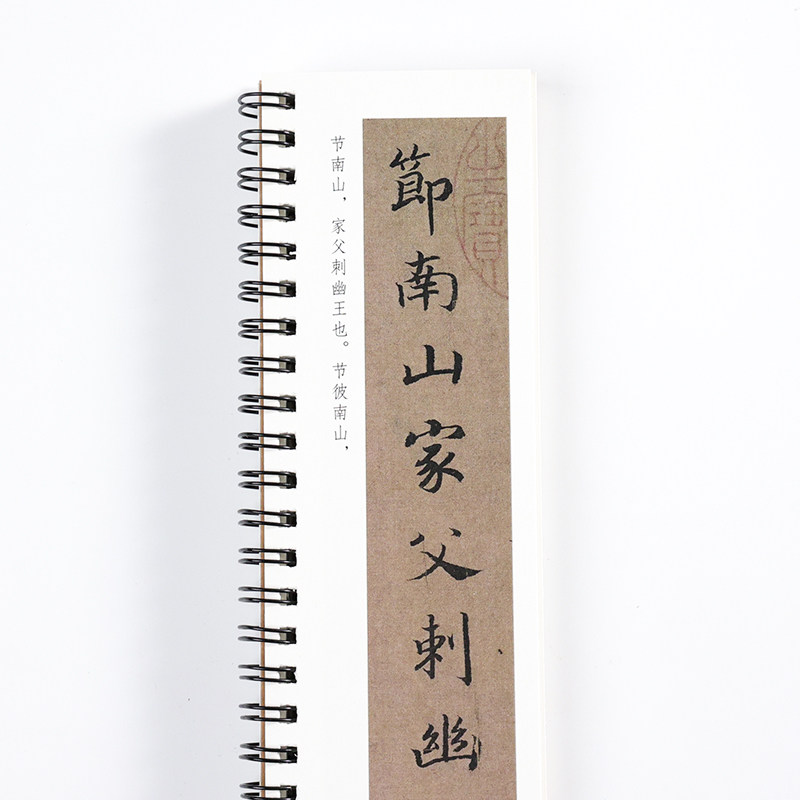 节南山，家父刺幽王也。节彼南山，
節南山家父刺幽